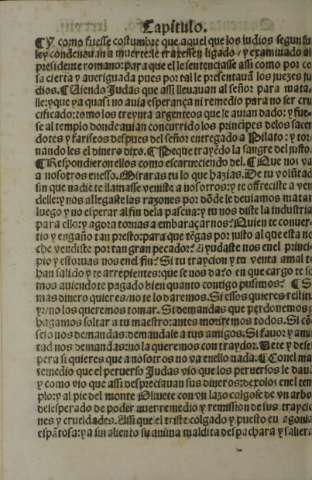 Capitulo.
¶ Y como fuesse costumbre que aquel que los iudios segun su
ley condenauan a muerte: le traxessen ligado y examinado al
presidente romano: para que el le sentenciasse assi como por co
sa cierta y aueriguada pues por tal le presentauã los juezes ju
dios. ¶ Uiendo Judas que assi lleuauan al señor para mata
lle: y que ya quasi no auia esperança ni remedio para no ser cru
cificado: tomo los treynta argenteos que le auian dado: y fue
se al templo donde auian concurrido los principes delos sacer
dotes y fariseos despues del señor entregado a Pilato: y tor
nando les el dinero dixo. ¶ Peque trayendo la sangre del justo.
¶ Respondieron ellos como escarneciendo del. ¶ Que nos va
a nosotros enesso. Miraras tu lo que hazias. De tu volũtad
sin que nadie te llamasse veniste a nosotros: y te offreciste a ven
delle: y nos allegaste las razones por dõde le deuiamos matar
luego y no esperar al fin dela pascua: y tu nos diste la industria
para ello: y agora tornas a embaraçarnos: Quien te conuer
tio y engaño tan presto: para que tẽgas por justo al que esta no
che vendiste por tan gran pecador: Ayudaste nos enel princi
pio y estoruas nos enel fin: Si tu traycion y tu venta a mal te
han salido y te arrepientes: que se nos da: o en que cargo te so
mos auiendote pagado bien quanto contigo pusimos? ¶ Si
mas dinero quieres: no te lo daremos. Si essos quieres
y: no los queremos tomar. Si demandas que perdonemos
hagamos soltar a tu maestro: antes morir emos todos. Si cõ
sejo nos demandas: demandale a tus amigos. Si fauor y ami
tad nos demandas: no la queremos con traydor. Uete y deses
pera si quieres que a nosotros no va enello nada. ¶ Con el ma
se medio que el peruerso Judas vio que los peruersos le dauã
y como vio que assi despreciauan sus dineros: dexolos enel tem
plo: y al pie del monte Oliuete con vn lazo colgose de vn arbol
desesperado de poder auer remedio y remission de sus traycio
nes y crueldades. Assi que el triste colgado y puesto en agonia
espãtosa: y a sin aliento su anima maldita del pachara y saliera